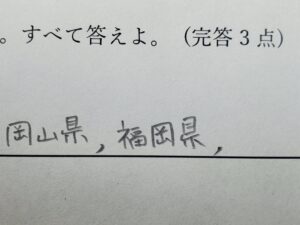 。すべて答えよ。(完答3点)
岡山県,福岡県,